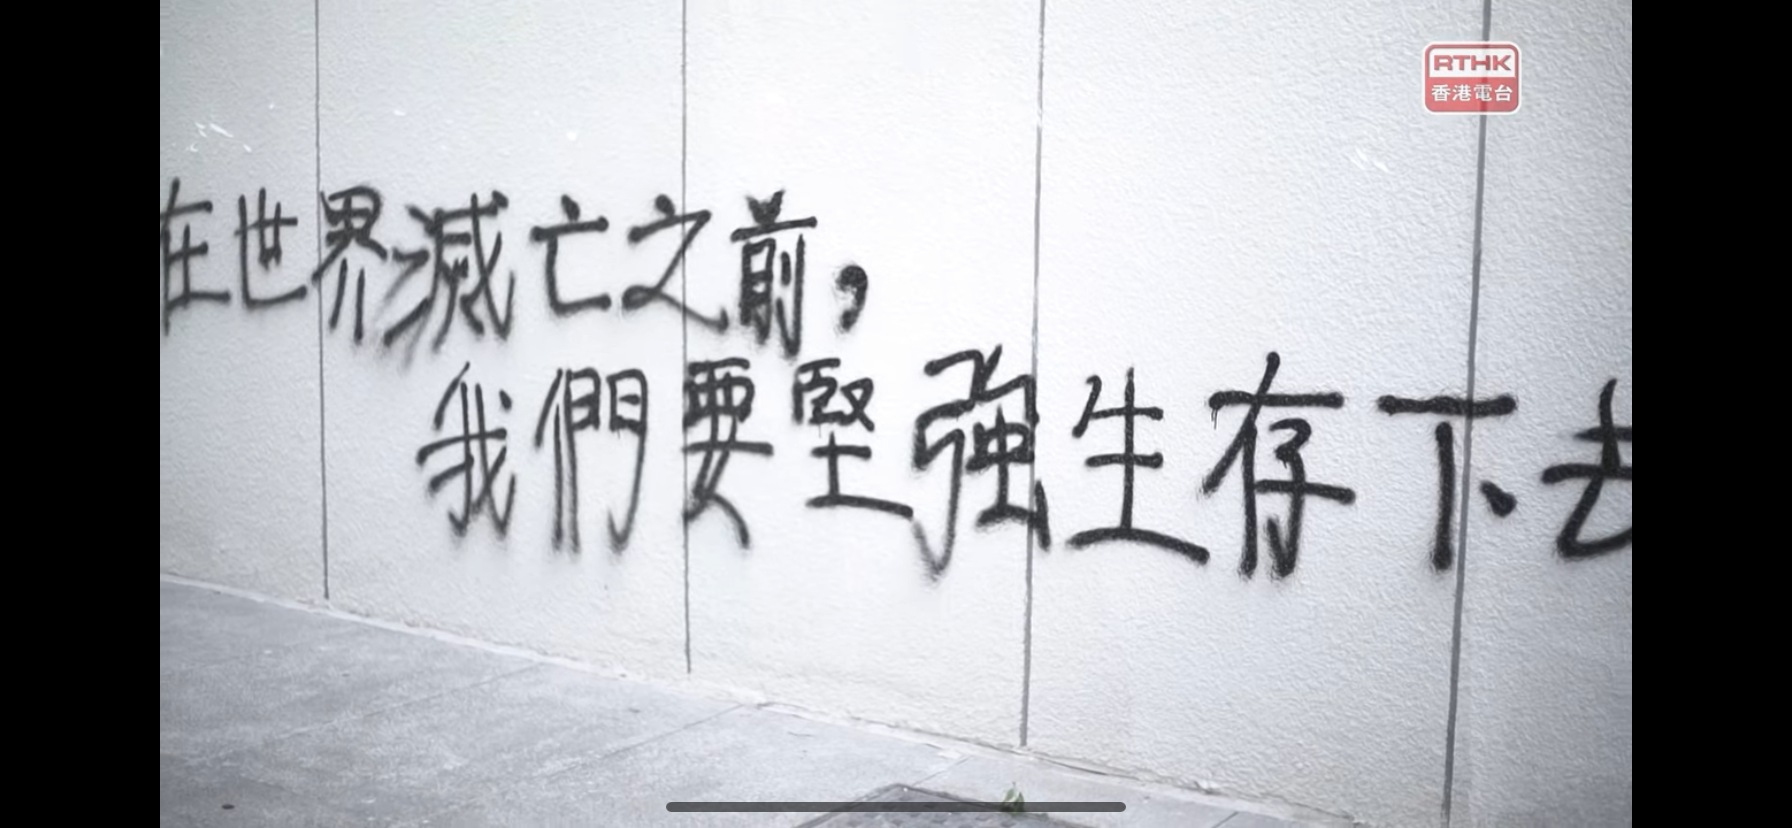 RTHK
香港電台
在世界滅亡之前，
我們要堅強生存下去